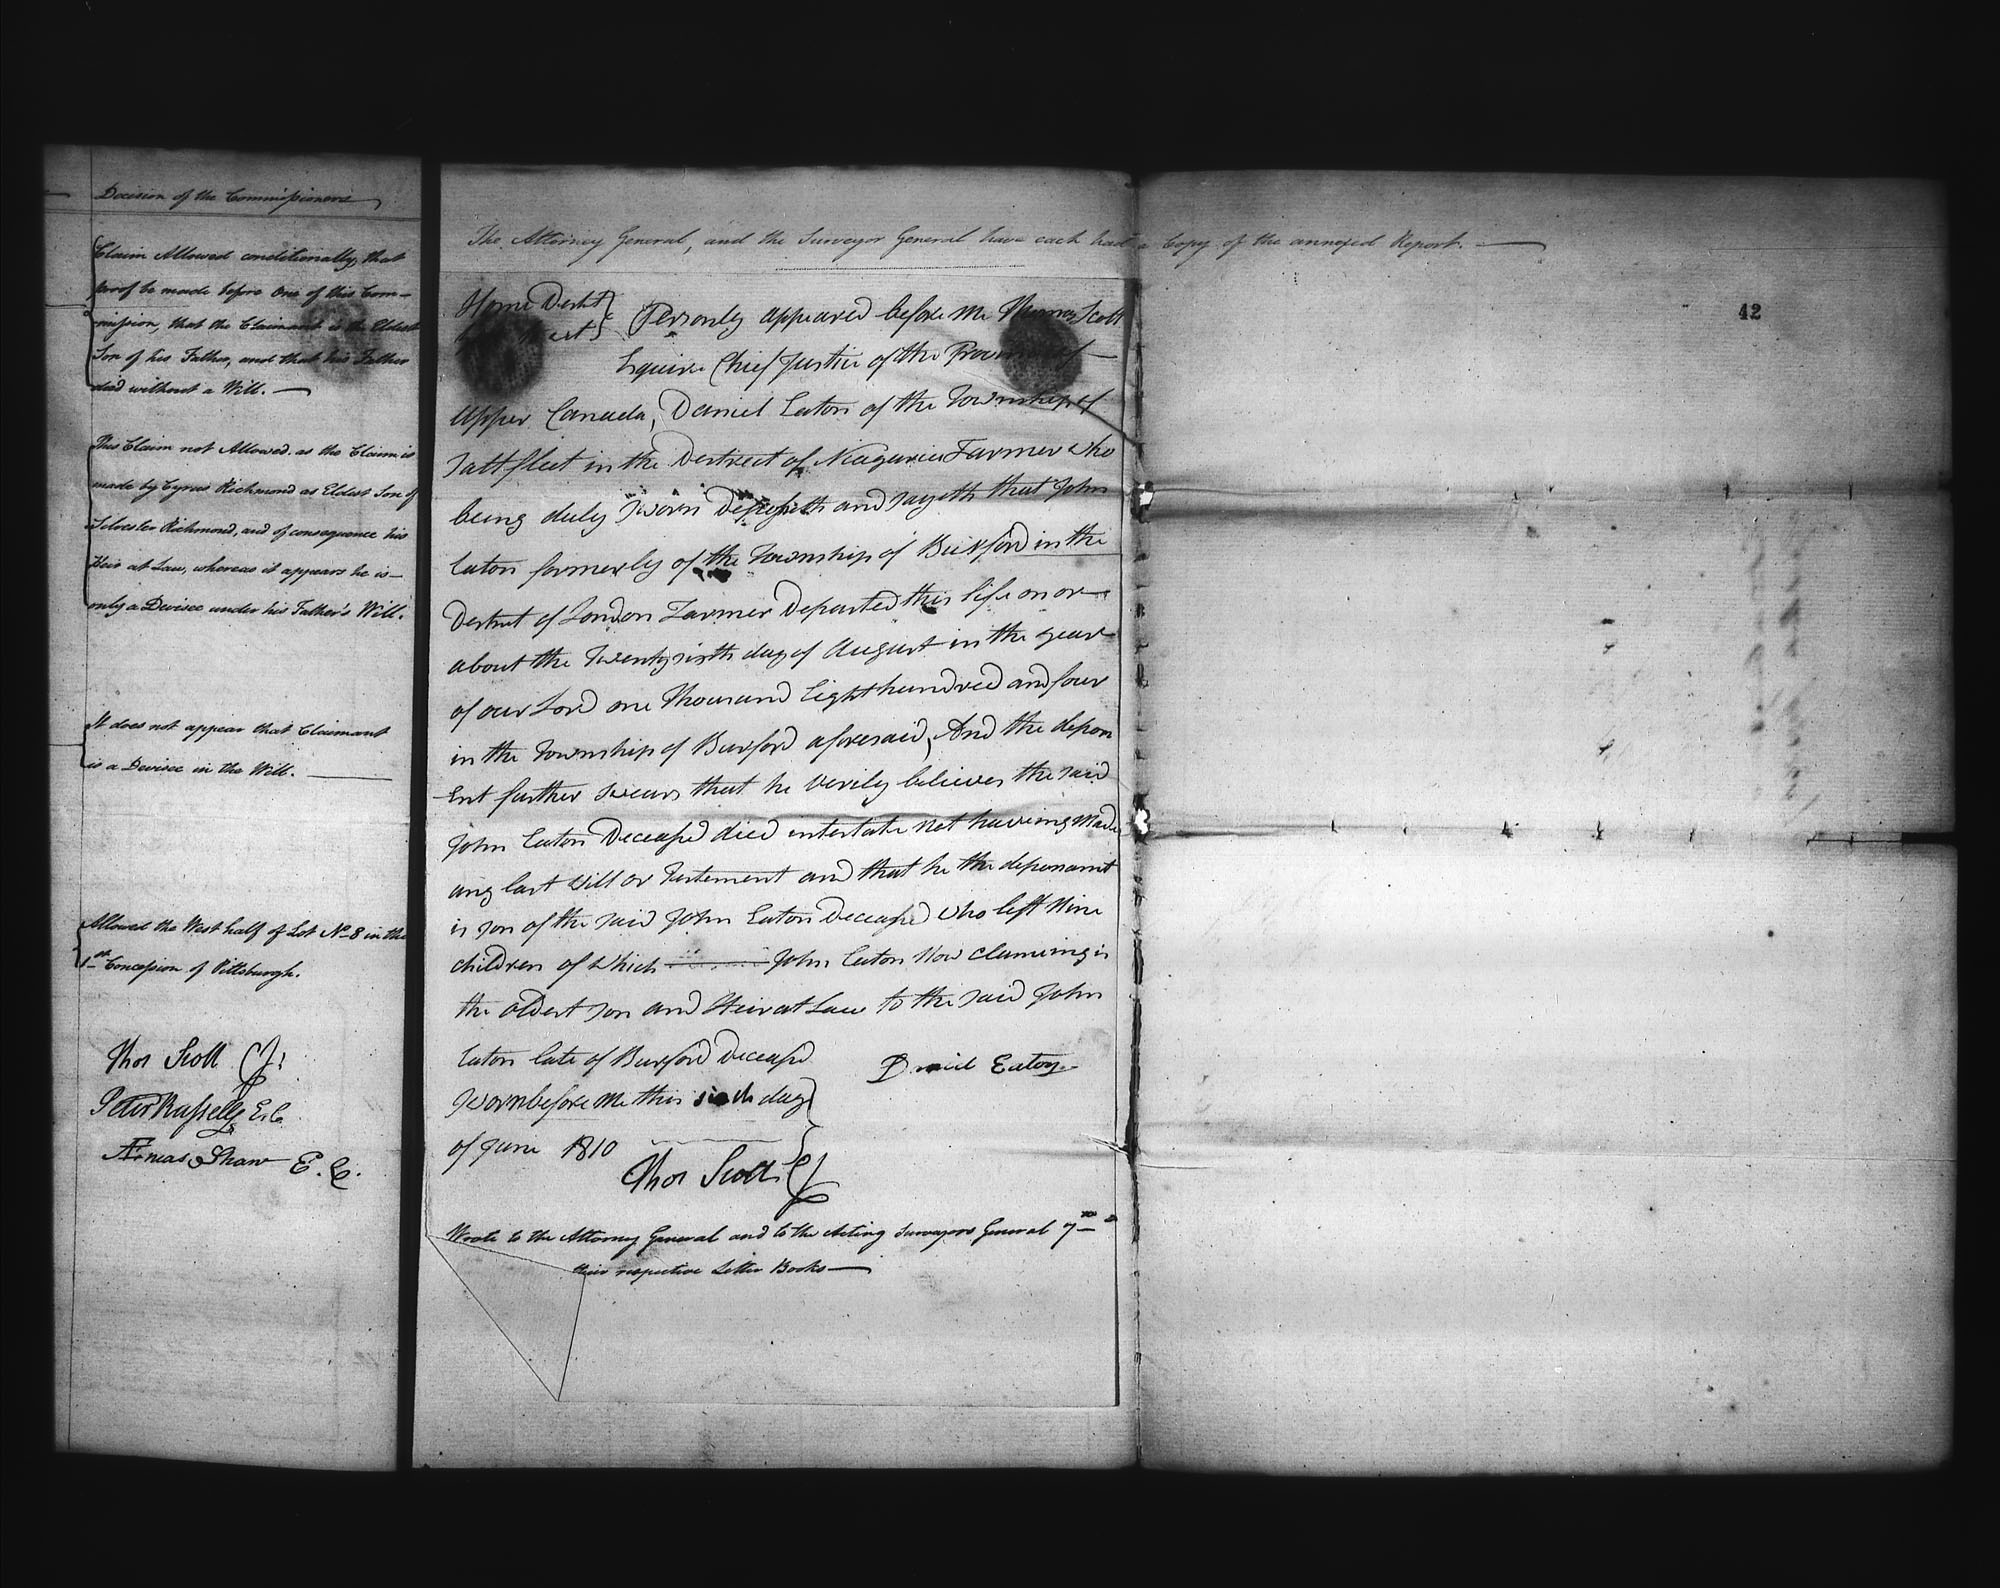 Decision of the Commissioners
Claim Allowed conditionally, that
proof be made before One of this Com-
mission, that the Claimant is the Eldest
Son of his Father, and that his Father
died without a Will.
This Claim not Allowed. as the Claim is
made by Cyrus Richmond as Eldest Son of
Silvester Richmond, and of consequence his
Heir at Law, whereas it appears he is
only a Devisee under his Father's Will.
It does not appear that Claimant
is a Devisee in the Will.
Allowed the West half of Lot No 8 in the
1st Concession of Pittsburgh.
Thos Scott CJ.
Peter Russell E.C.
Æneas Shaw E.C.
The Attorney General, and the Surveyor General have each had a Copy of the annexed Report.
42
Home Destt
Personly appeared before me Thomas Scott
Esquire Chief Justice of the Province of
Upper Canada, Daniel Eaton of the Township of
Saltfleet in the Destrect of Niagaria Farmer who
being duly Sworn Deposeth and sayeth that John
Eaton formerly of the Township of Burford in the
Destrict of London Farmer Departed this life on or
about the Twenty sixth day of August in the year
of our Lord one Thousand Eight hundred and four
in the Township of Burford aforesaid, And the depon
Ent further swears that he verily believes the said
John Eaton Deceased died intestate not haveing Made
any last Will or Testement and that he the deponant
is son of the said John Eaton Deceased who left Nine
children of which John Eaton Now claiming is
the oldest son and Heir at Law to the said John
Eaton late of Burford Deceased
Daniel Eaton
Sworn before me this sixth day
of June 1810
Thos Scott CJ
Wrote to the Attorney General and to the Acting Surveyors General
their respective Letter Books